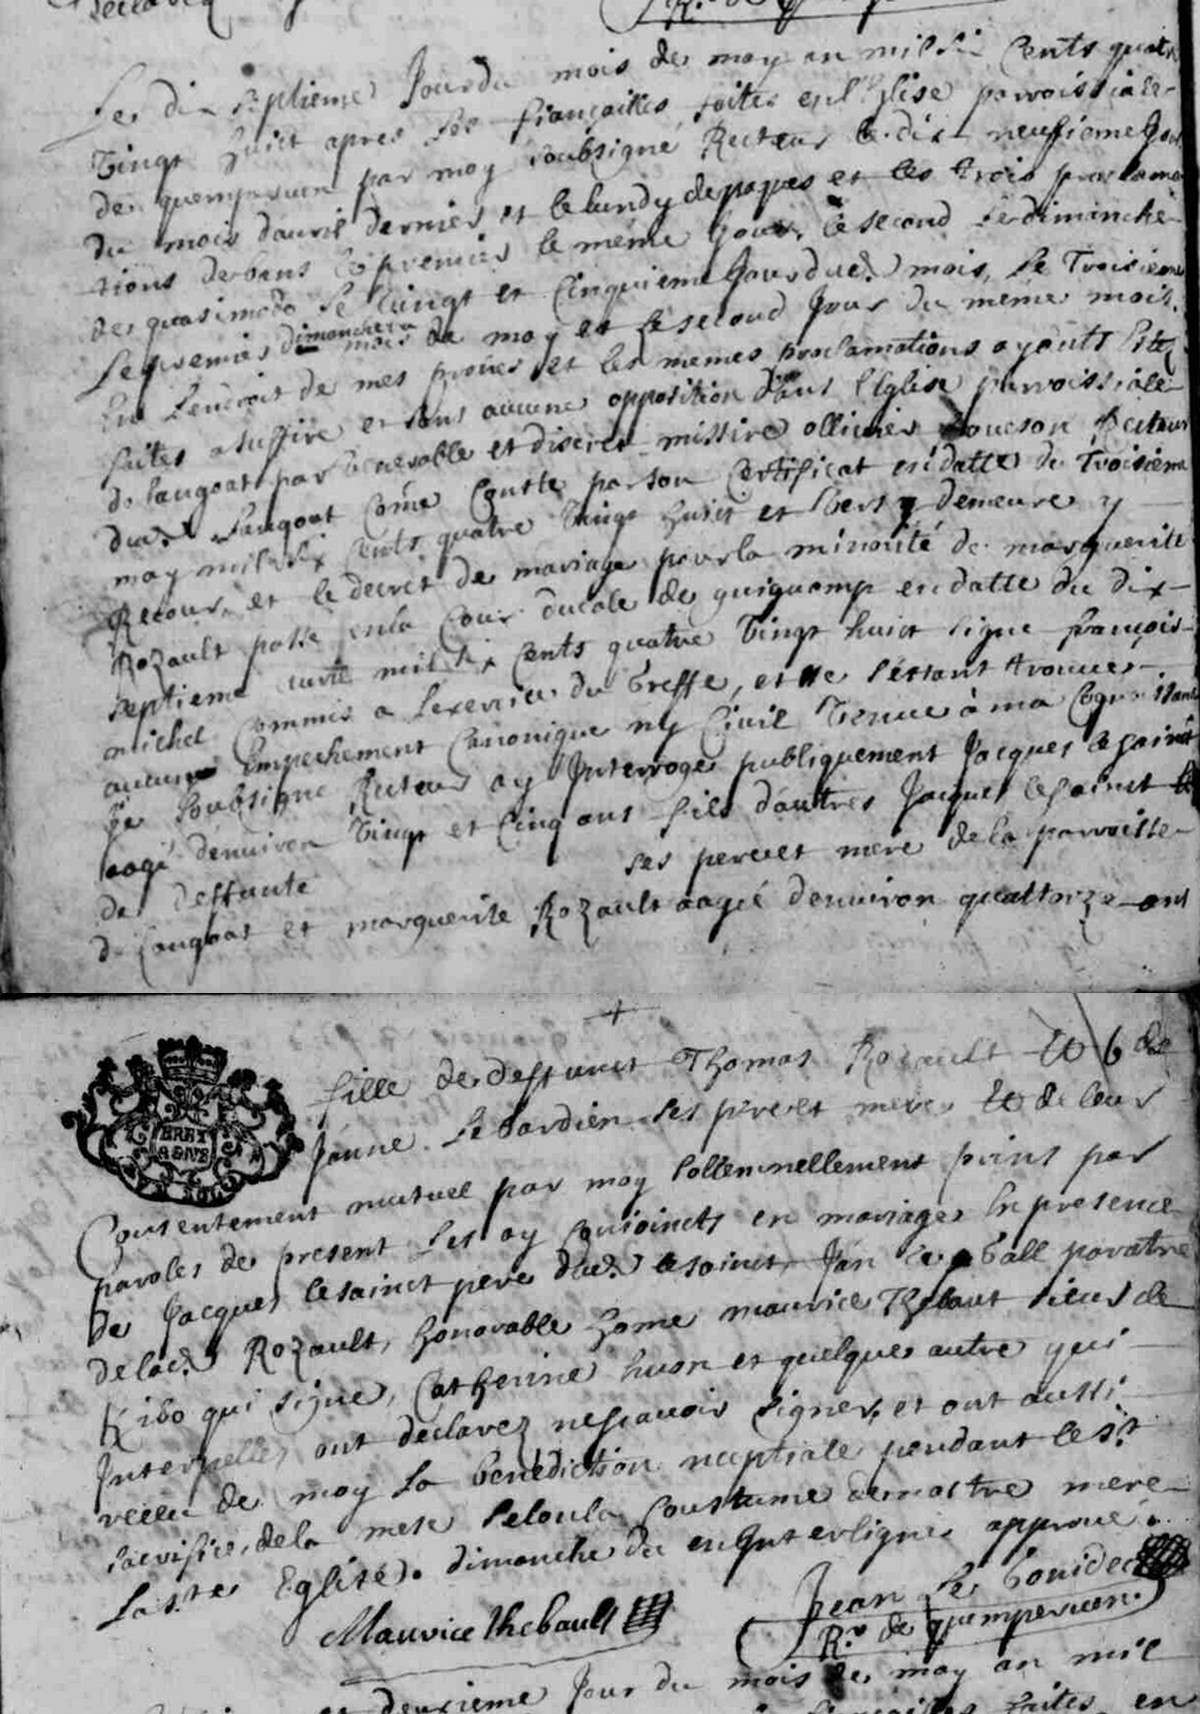 Le dix septieme Jour du mois de may an mil six Cents quatre
vingt huict apres les fiançailles faites en l'Eglise parroissiale
de quempervern par moy soubsigné Recteur le dix neuffieme Jour
du mois davril dernier et le lundy de paques et les trois proclama
tions de bans le premier le même Jour, le second le dimanche
de quasimodo le vingt et Cinquieme Jour dud. mois, le Troisieme
le premier dimanche du mois de may et le second Jour du même mois
En l'endroit de mes prônes et les memes proclamations ayants Estez
faites a suffire et sans aucune opposition dans l'Eglise parroissiale
de Langoat par venerable et discret missire ollivier Recteur
dud. Langoat come Conste par son Certificat en datte du Troisieme
may mil six Cents quatre vingt huict et demeure y
Recours, et le decret de mariage pour la minorité de marguerite
Rozault passé en la Cour ducale de guiguamp en datte du dix
septieme mil six Cents quatre vingt huict signe françois
michel Commis a l'exercice du Greffe, et ne s'estant trouvé
aucun Empechement Canonique ny Civil venue à ma Cognoissance
Je soubsigne Recteur ay Interroge publiquement Jacques le sainct
aagé denviron vingt et Cinq ans fils d'autres Jacques le sainct
de deffunte ses pere et mere de la parroisse
de Langoat et marguerite Rozault aagée denviron quattorze ans
+
fille de deffunct Thomas Rozault de
Janne le bardien ses pere et mere de leur
Consentement mutuel par moy sollemnellement prins par
paroles de present les ay conjoincts en mariage En presence
de Jacques le sainct pere dud. le sainct, Jan le Gall paratre
de lad. Rozault, honorable home maurice Thebaut sieur de
qui signe, Catherine huon et quelques autre qui
Interpellés ont déclarez ne sçavoir signer, et ont aussi
receu de moy la benediction nuptiale pendant le St
sacrifice de la mese selon la Coustume de nostre mere
la Ste Eglise. dimanche du en Interligne approuvé.
Maurice Thebault
Jean le Gonidec
Rr de quempervern.
et deuxieme Jour du mois de may an mil
faites en